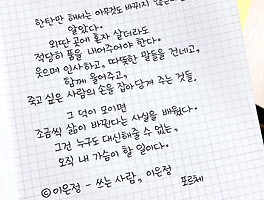 한탄만 해서는 아무것도 바뀌지
알았다.
외딴 곳에 혼자 살더라도
적당히 틈을 내어주어야 한다.
웃으며 인사하고, 따뜻한 말들을 건네고,
함께 울어주고,
주고 싶은 사람의 손을 잡아당겨 주는 것들.
그 덕이 모이면
조금씩 삶이 바뀐다는 사실을 배웠다.
그건 누구도 대신해줄 수 없는,
오직 내 가슴이 할 일이다.
ⓒ이은정 - 쓰는 사람, 이은정 포르체